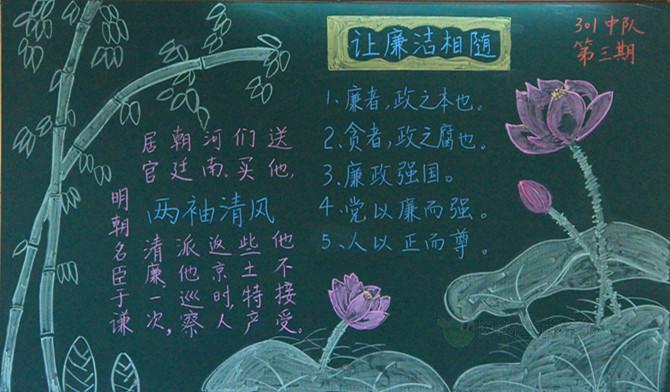 让廉洁相随
301中队
第三期
两袖清风
明朝名臣于谦
居官清廉一次,
朝廷派他巡察
河南。返京时,人
们买些土特产
送他,他不接受。
1、廉者,政之本也。
2、贪者,政之腐也。
3、廉政强国。
4、党以廉而强。
5、人以正而尊。